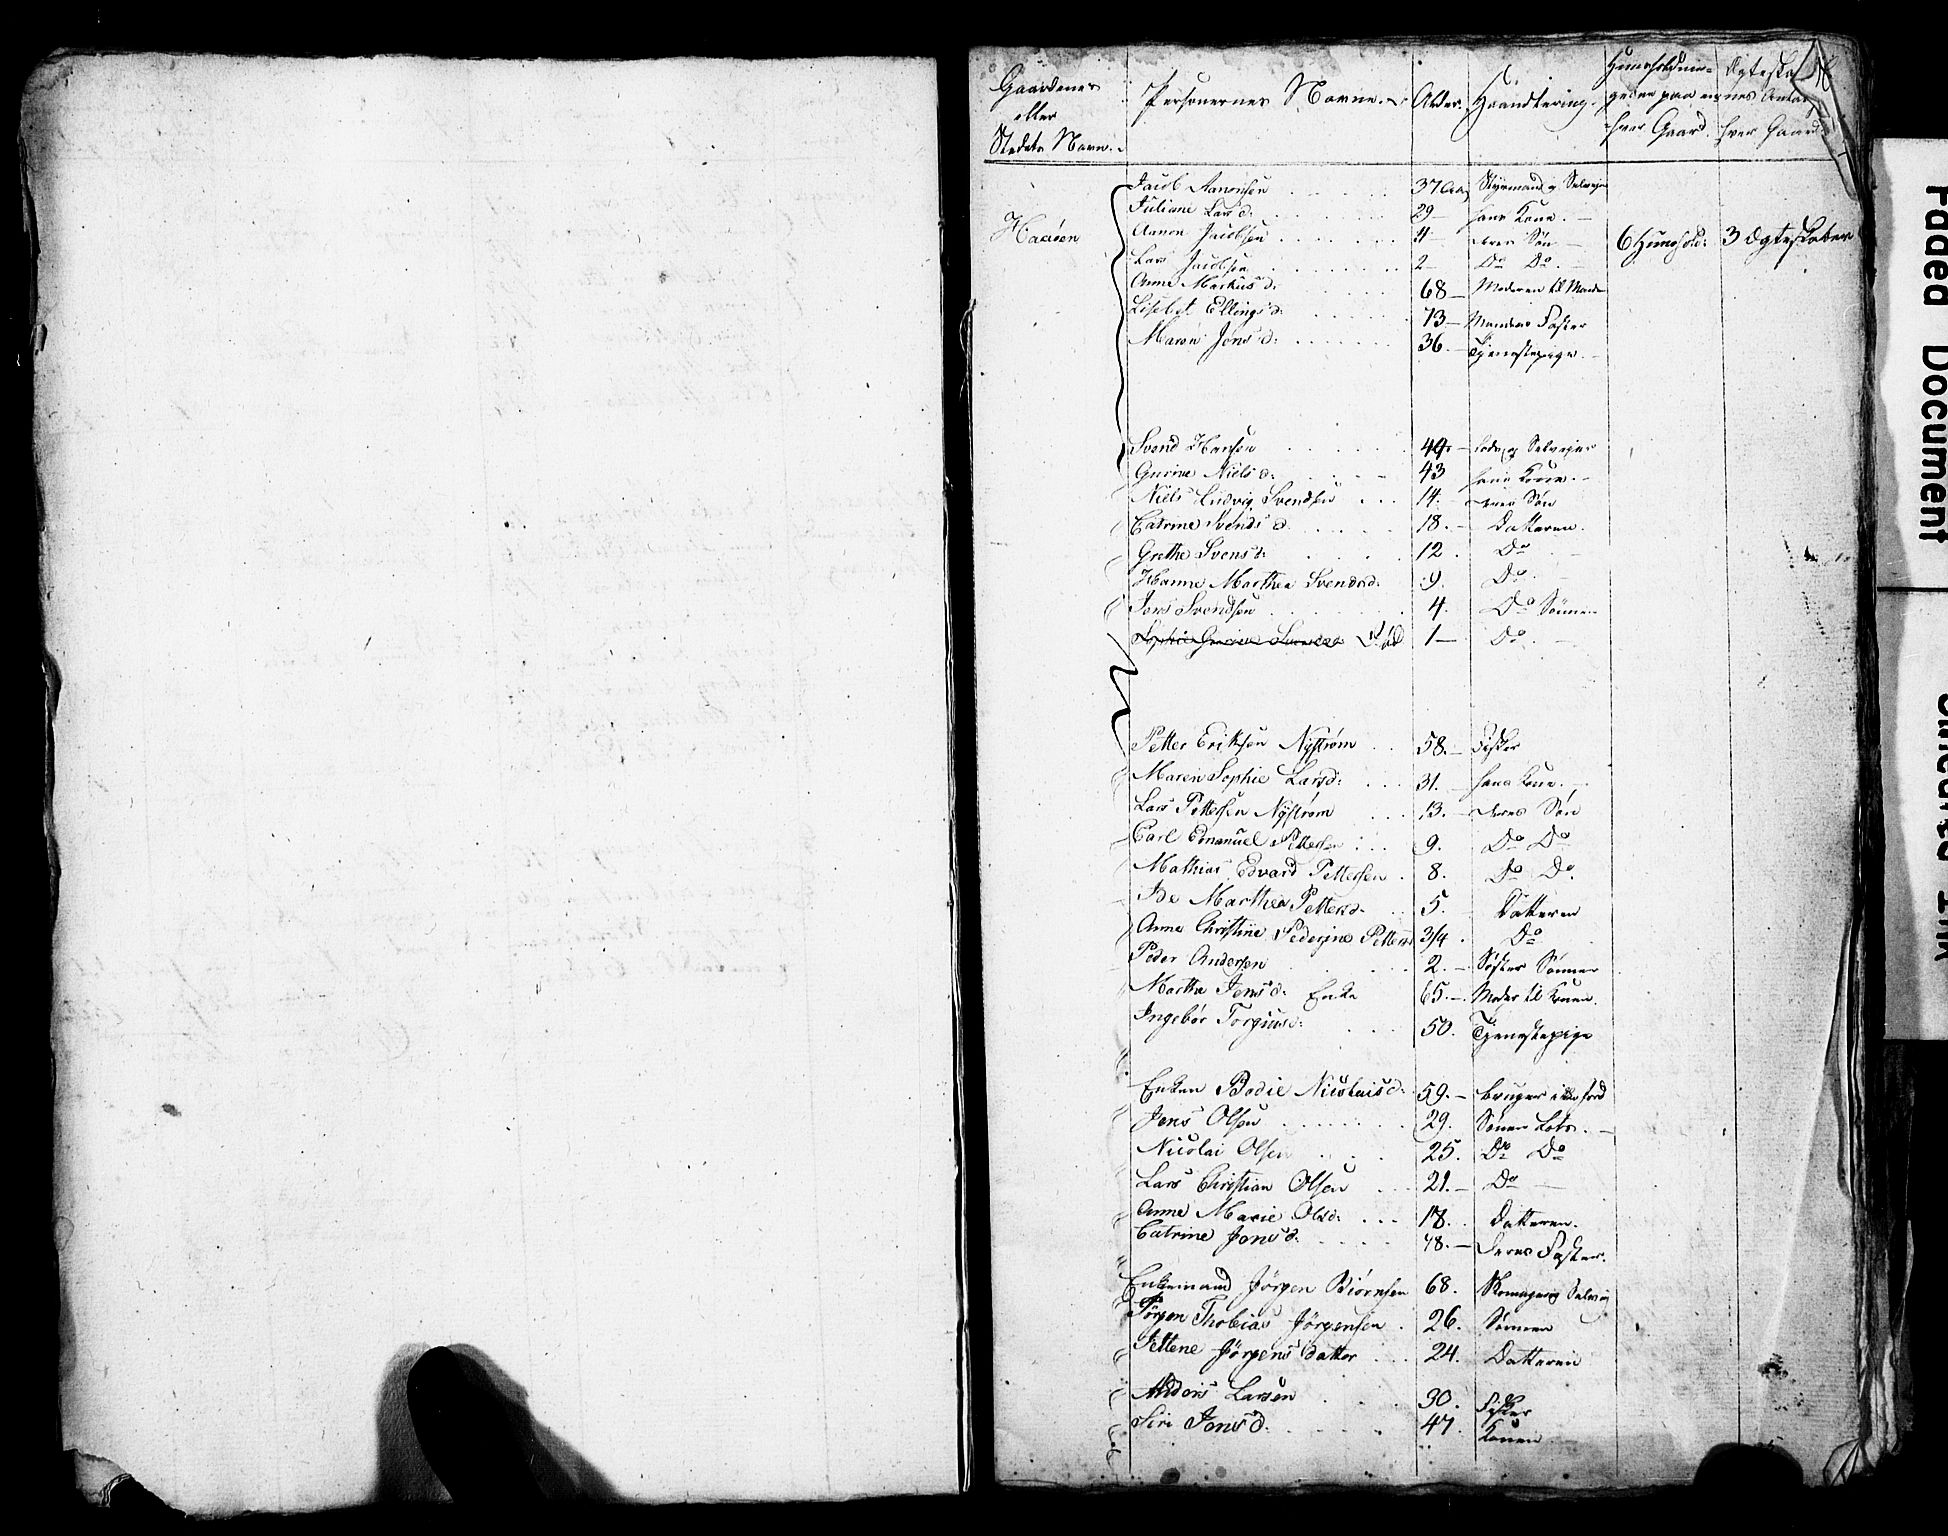 Gaardenes eller Stedets Navn. Personernes Navne. Alder. Haandtering. Huusholdningerne paa hver Gaard. Ægteska nes Antal hver Gaard
Jacob Aanonsen 37 Aar Styrmand og Selvejer
Juliane Lars d. 29 hans Kone.
Haaøen Aanon Jacobsen 4 deres Søn 6 Huushold: 3 Ægteskaber
Lars Jacobsen 2 Do Do.
Anne Markus d: 68 Moderen til Manden
Lisebet Ellings d: 73 Mandens Faster
Maren Jens d: 36 Tjenestepige.
Svend Hansen 49 Lods og Selvejer
Gurine Niels d: 43 hans Kone.
Niels Ludvig Svendsen 14. deres Søn
Catrine Svends d. 18. Datteren.
Grethe Svens d: 12. Do
Hanne Marthea Svendsd. 9. Do.
Jens Svendsen 4. Do Sønnen
Sophie Gurine Svendsd Død 1 Do.
Petter Eriksen Nystrøm 58. Fisker
Maren Sophie Larsd: 31. hans Kone.
Lars Pettersen Nystrøm 13. deres Søn
Carl Emanuel Pettersen 9. Do Do
Mathias Edvard Pettersen 8. Do Do.
Marthea Pettersd. 5. Datteren
Anne Christine Pederine Petters 3/4. Do
Peder Andersen 2. Søster Sønnen
Marthe Jens d. Enke 65. Moder til Konen.
Ingebor Torgiusd: 50. Tjenestepige
Enken Bodil Nicolaisd. 59. bruger jord
Jens Olsen 29. Sønen Lods.
Nicolai Olsen 25. Do Do
Lars Christian Olsen 21. Do
Anne Marie Olsd: 18. Datteren.
Catrine Jensd. 48. Deres Faster.
Enkemand Jørgen Biørnsen 68. Skomager og Selvej
Jørgen Thobias Jørgensen 26. Sønnen
Jettene Jørgens datter 24. Datteren
Anders Larsen 30. Fisker
Siri Jens d. 47. Konen
Faded Document